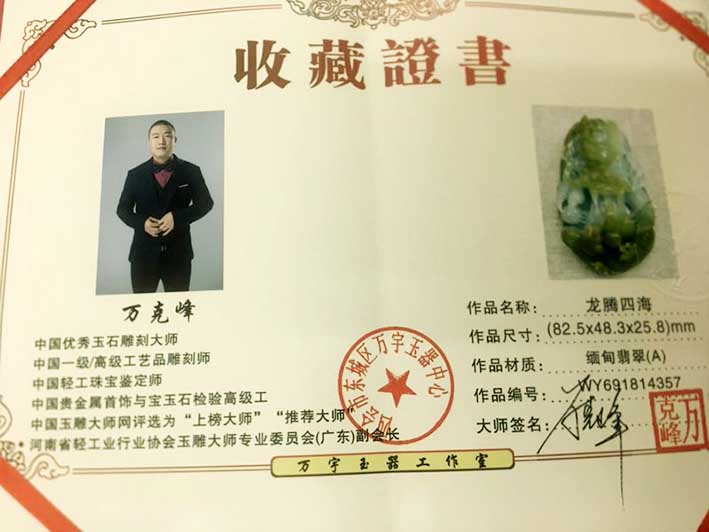 收藏證書
万克峰
中国优秀玉石雕刻大师
中国一级/高级工艺品雕刻师
中国轻工珠宝鉴定师
中国贵金属首饰与宝玉石检验高级工
中国玉雕大师网评选为“上榜大师”“推荐大师”
河南省轻工业行业协会玉雕大师专业委员会(广东)副会长
四会市东城区万宇玉器中心
作品名称: 龙腾四海
作品尺寸: (82.5x48.3x25.8)mm
作品材质: 缅甸翡翠(A)
作品编号: WY691814357
大师签名:
万克峰
万宇玉器工作室